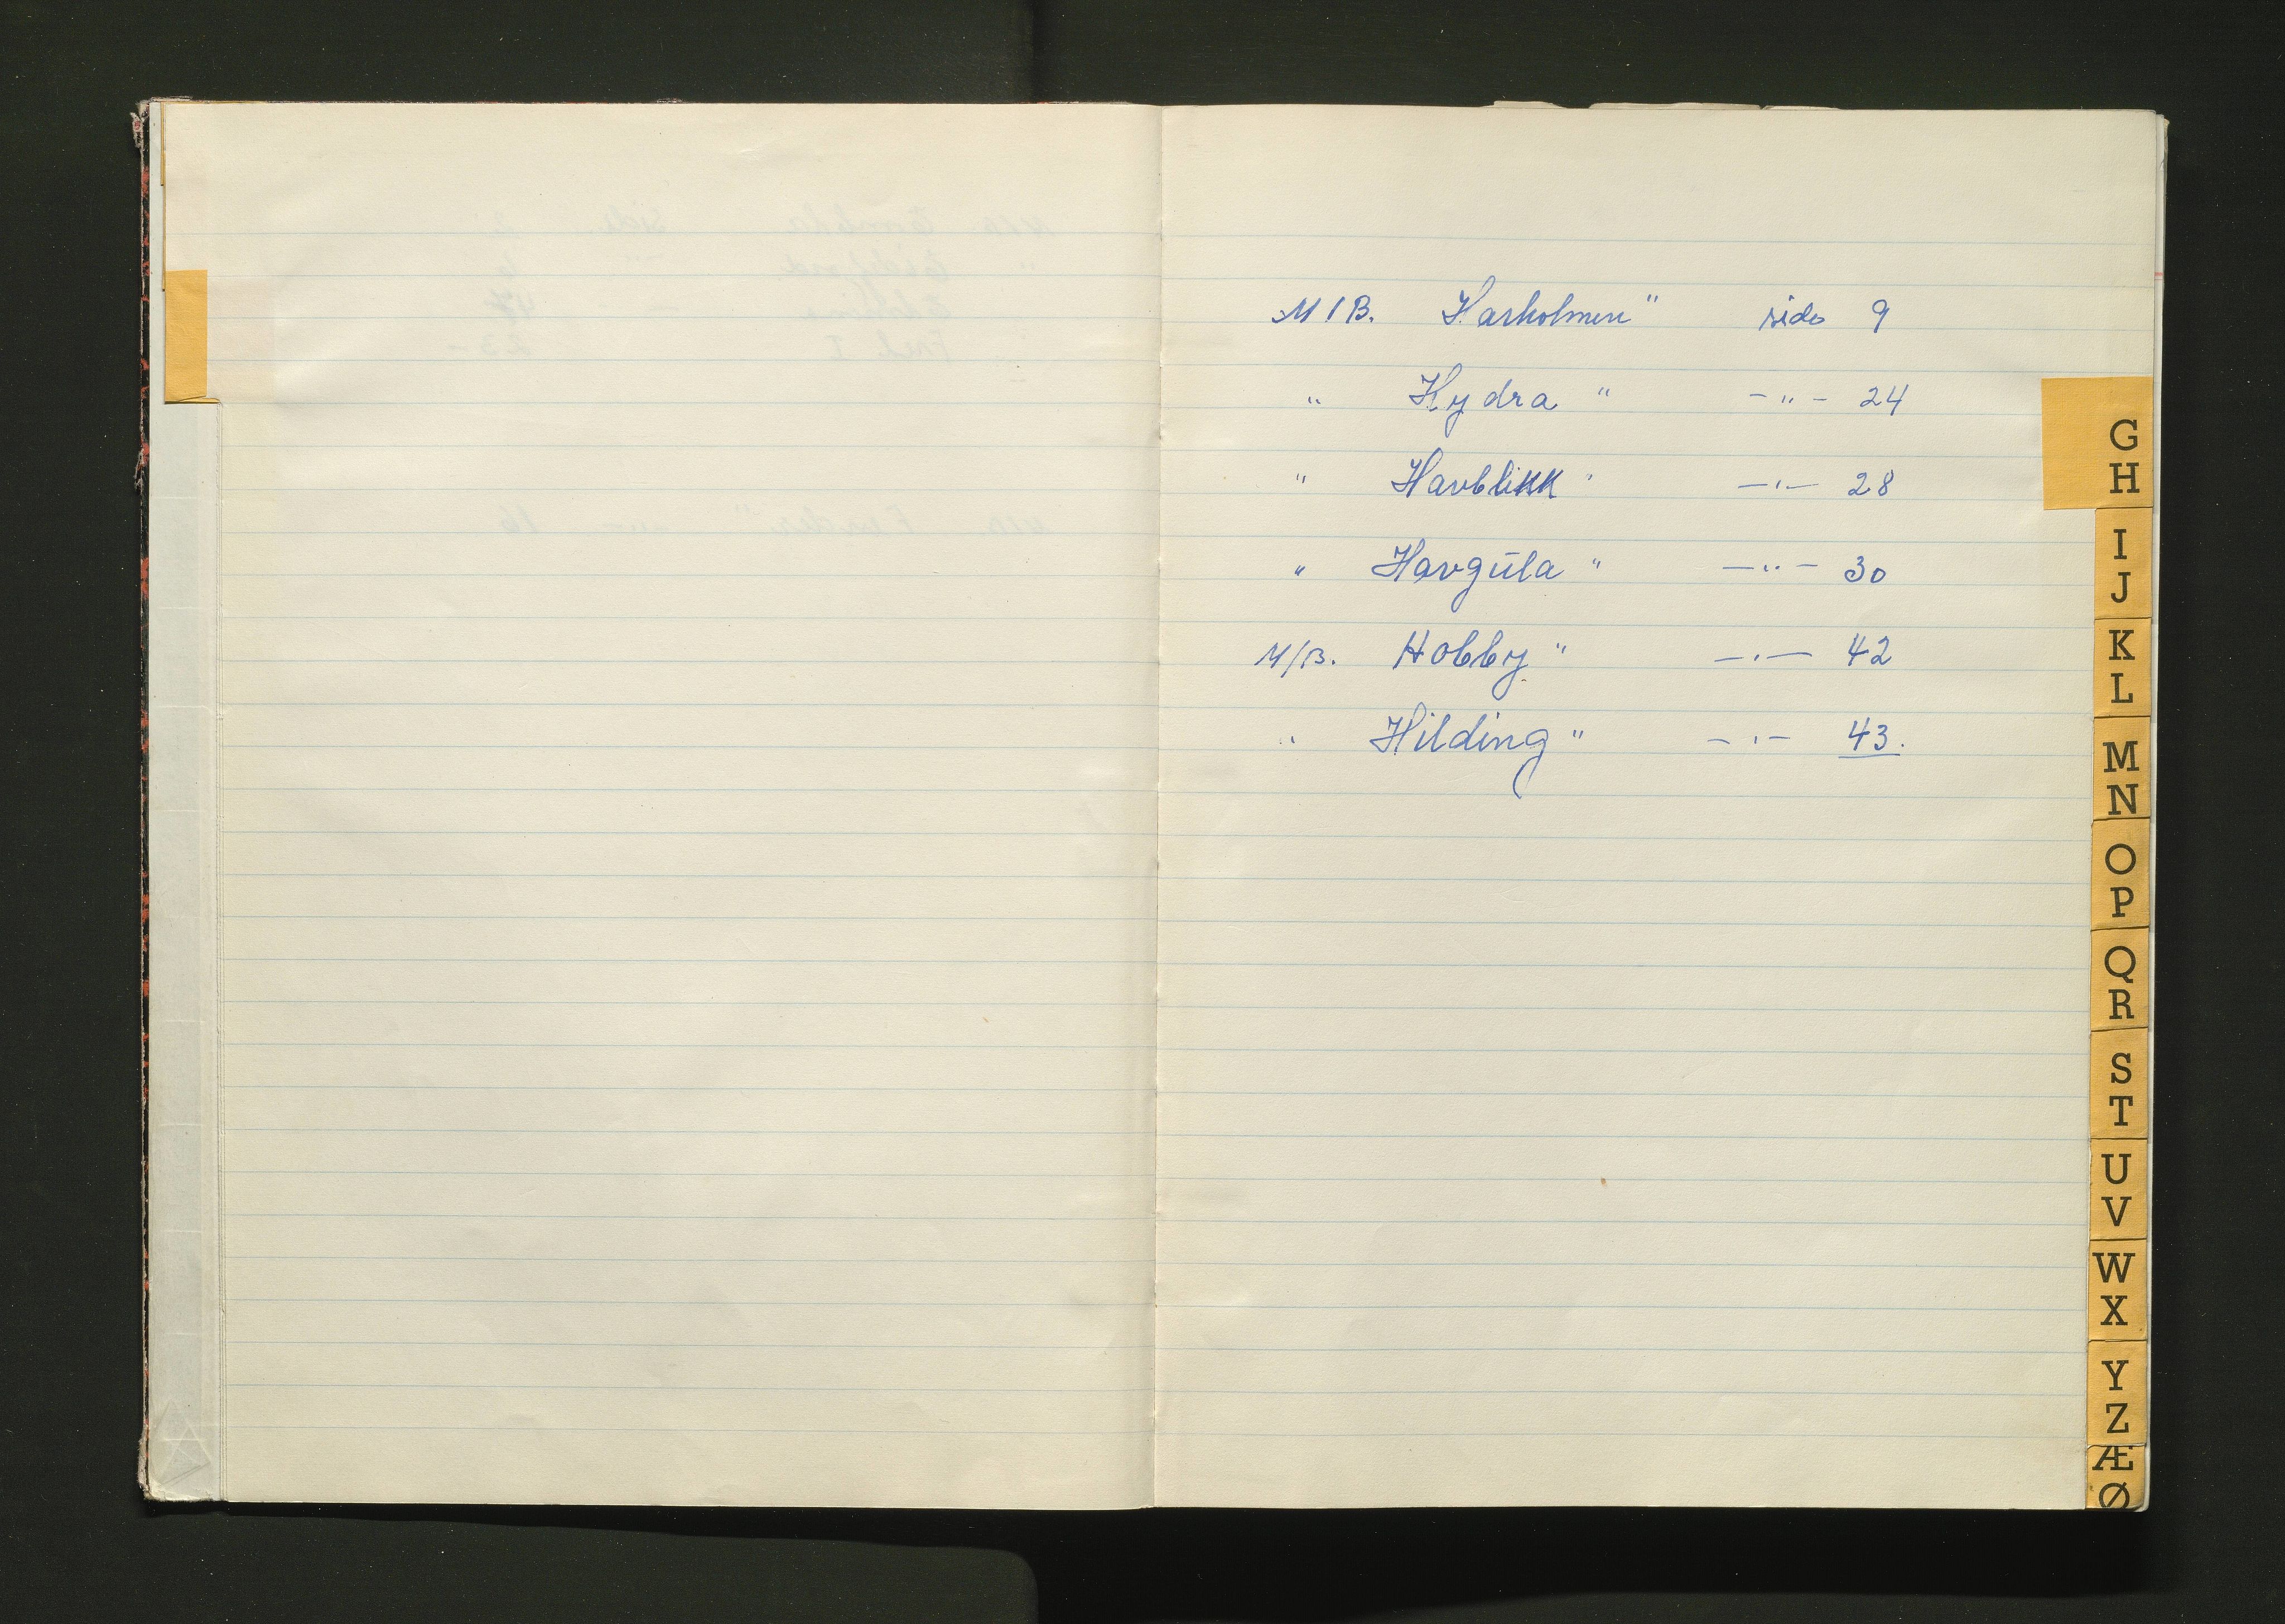 M/B. Harholmen" side 9
" Hydra " -"- 24
" Havblikk " -"- 28
" Havgula " -"- 30
M/B. Hobby " -"- 42
" Hilding " -"- 43.
G
H
I
J
K
L
M
N
O
P
Q
R
S
T
U
V
W
X
Y
Z
Æ
Ø